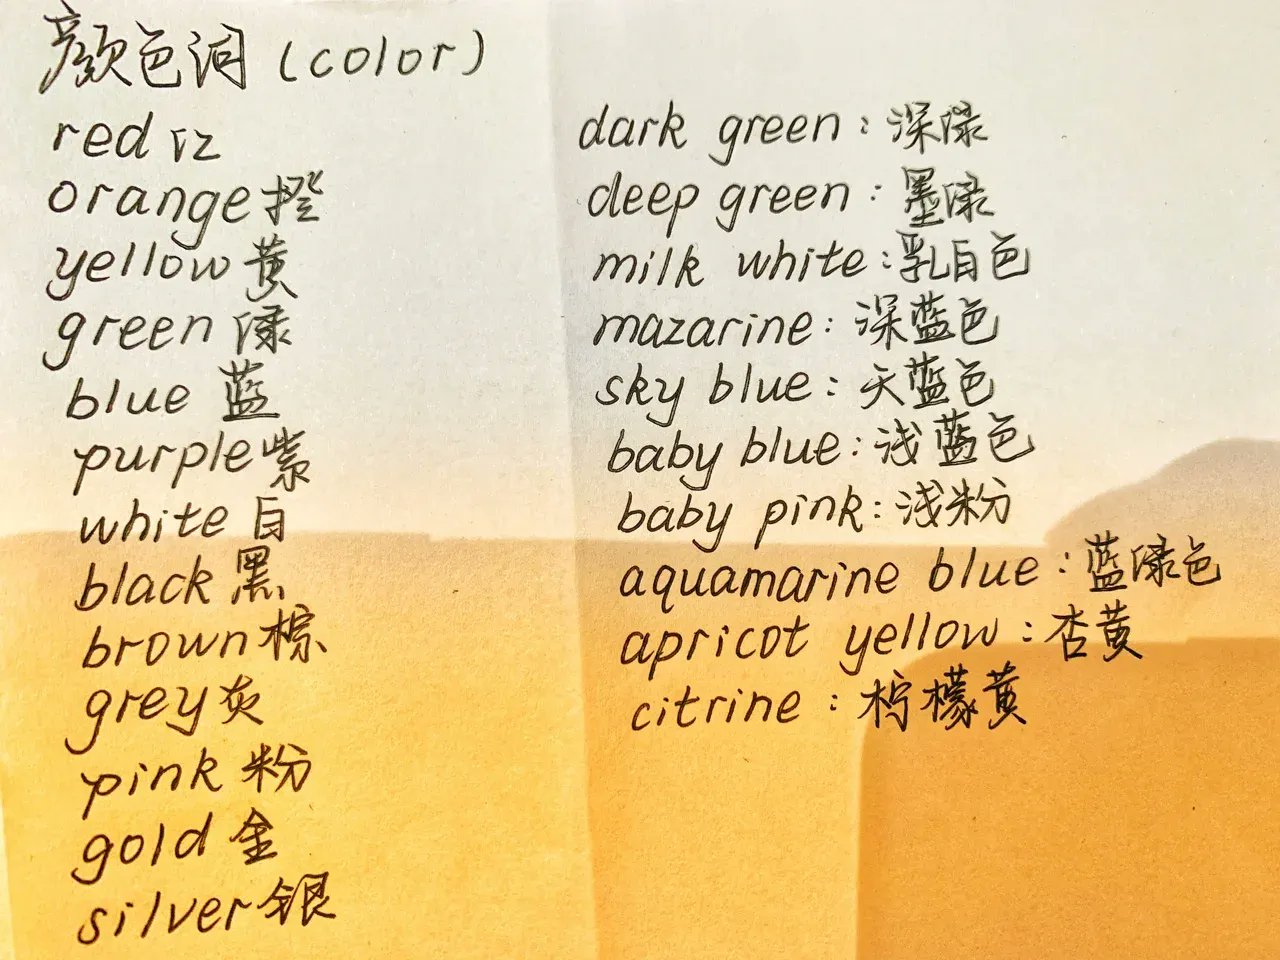 颜色词 (color)
red 红
orange 橙
yellow 黄
green 绿
blue 蓝
purple 紫
white 白
black 黑
brown 棕
grey 灰
pink 粉
gold 金
silver 银
dark green : 深绿
deep green : 墨绿
milk white : 乳白色
mazarine : 深蓝色
sky blue : 天蓝色
baby blue : 浅蓝色
baby pink : 浅粉
aquamarine blue : 蓝绿色
apricot yellow : 杏黄
citrine : 柠檬黄